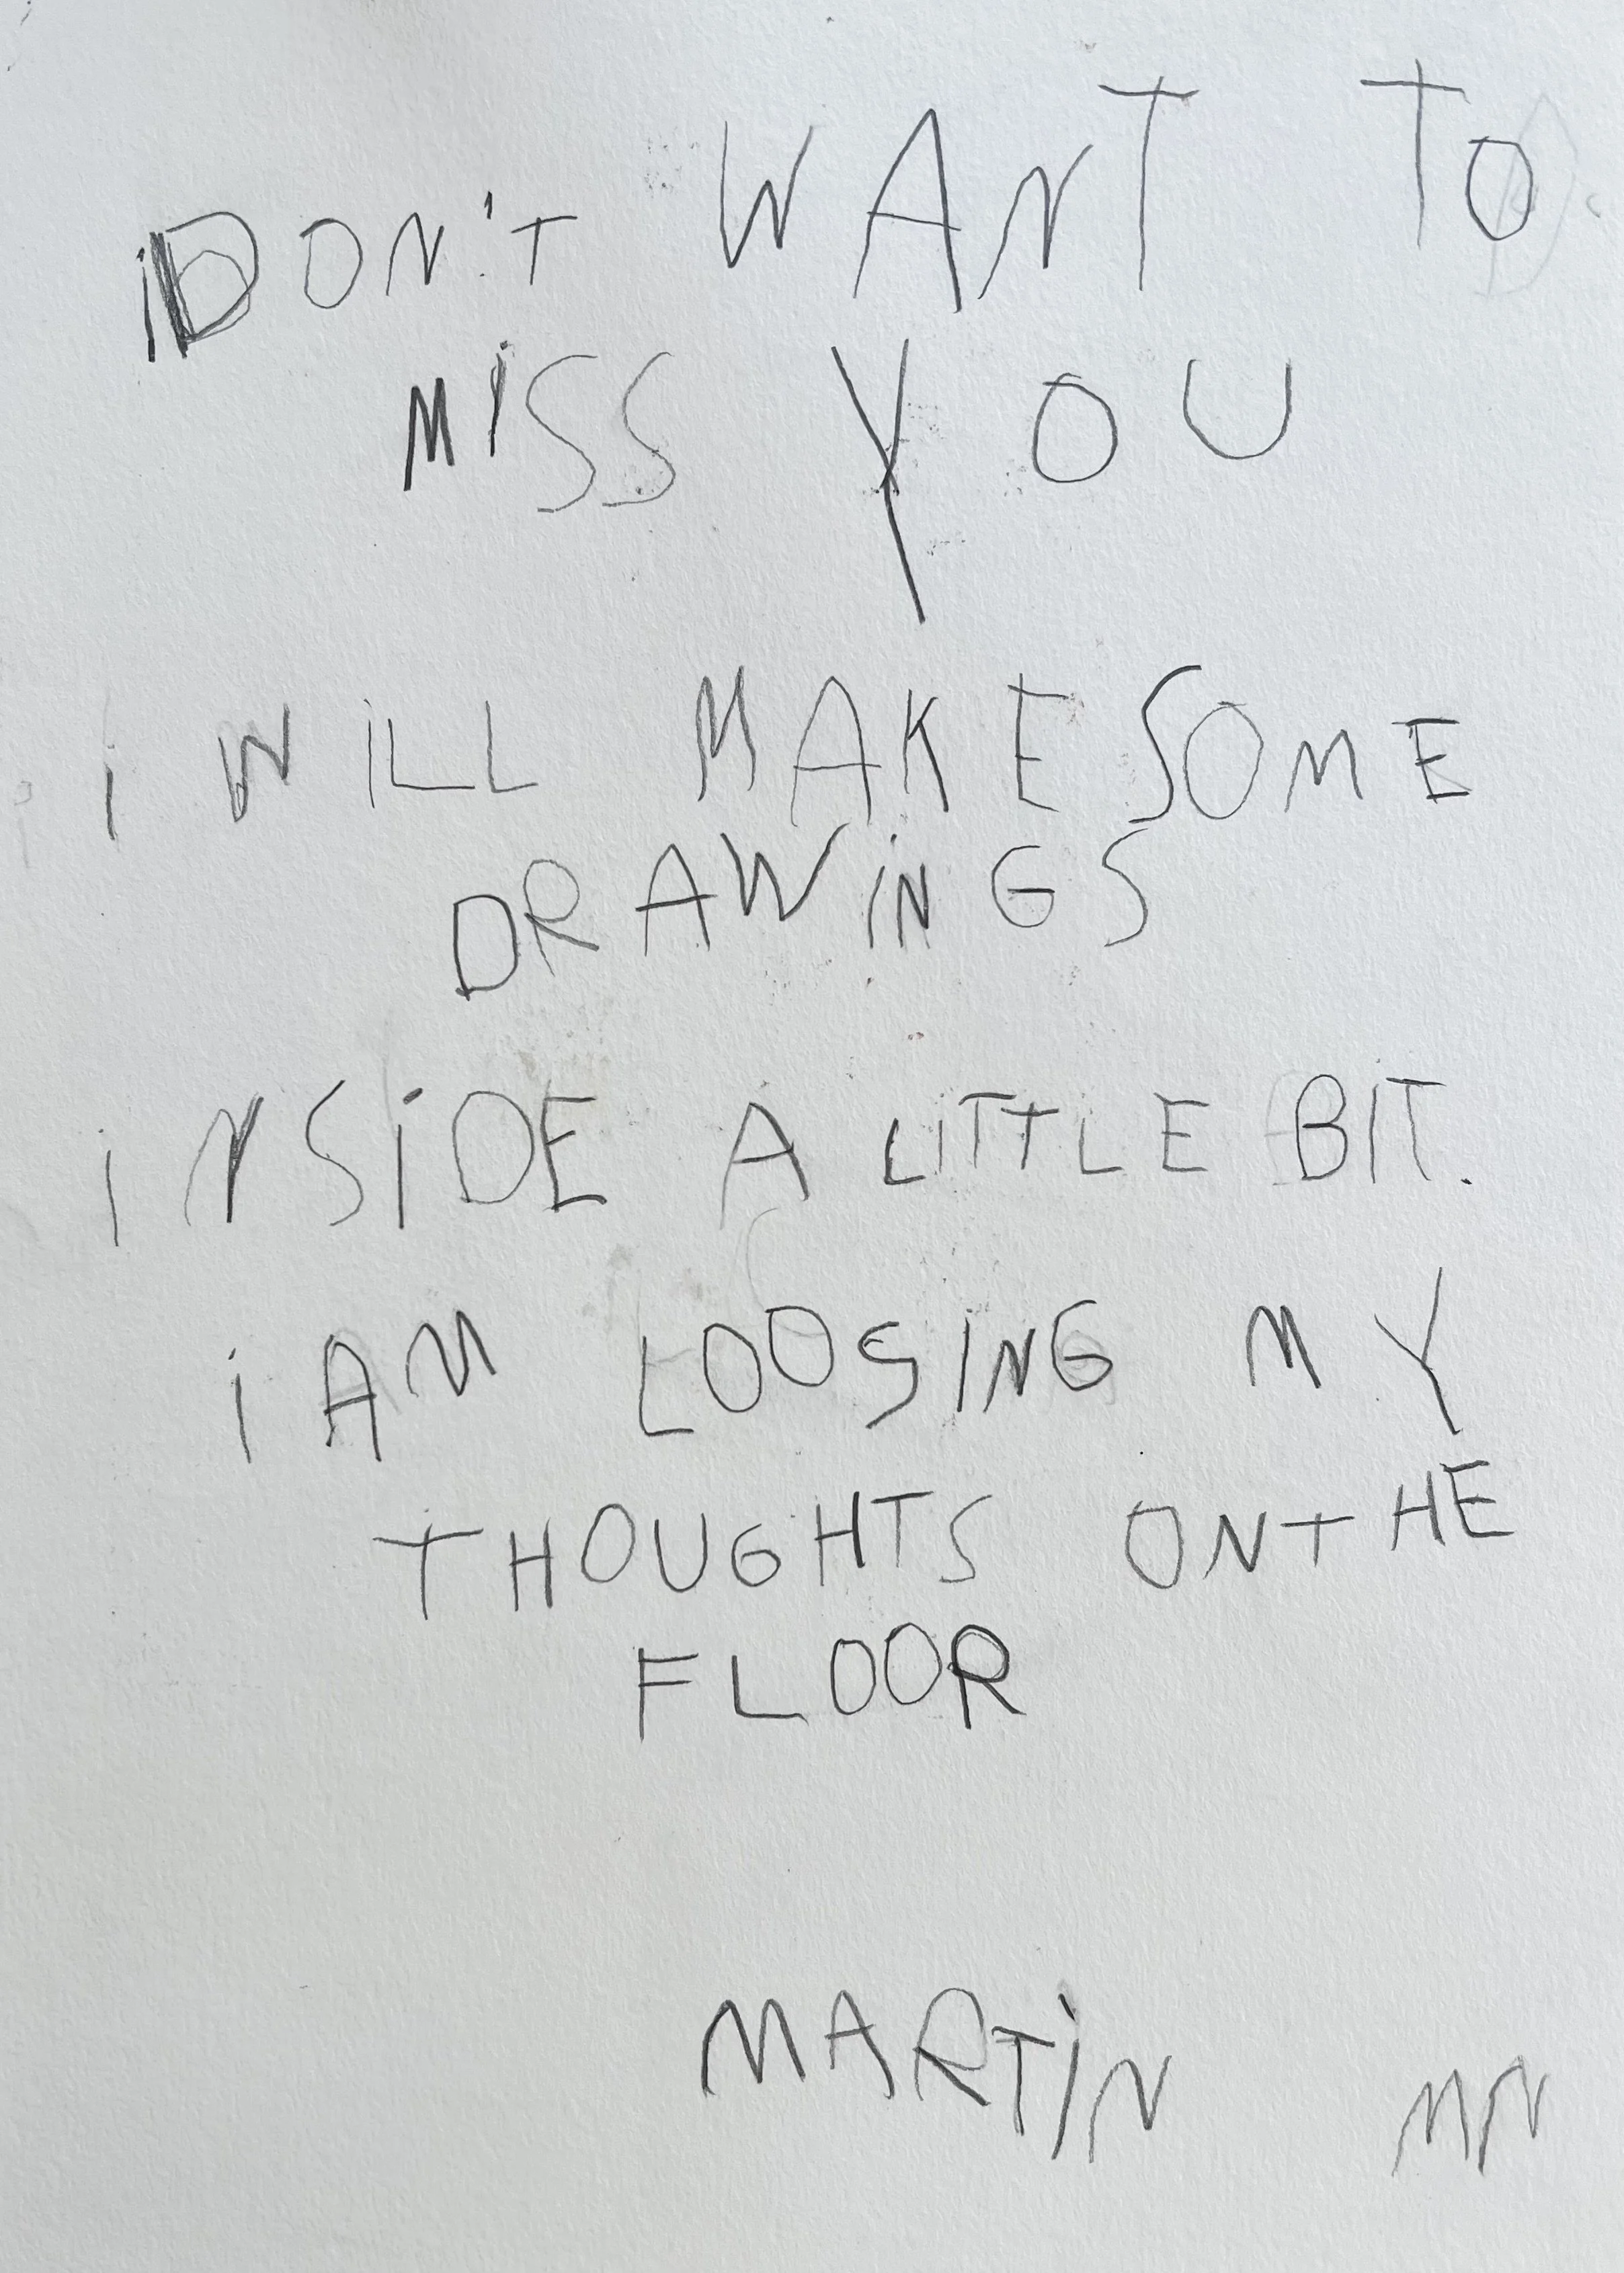 iDON'T WANT TO
MiSS YOU
i WiLL MAKE SOME
DRAWiNGS
iNSiDE A LiTTLE BIT.
i AM LOOSING MY
THOUGHTS ON THE
FLOOR
MARTiN MN